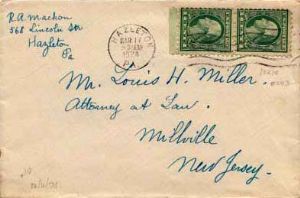 R.A. Machon
568 Lincoln
Hazleton
Pa
HAZLETON
MAR 17
PA.
Mr. Louis H. Miller.
Attorney at Law.
Millville
New Jersey.